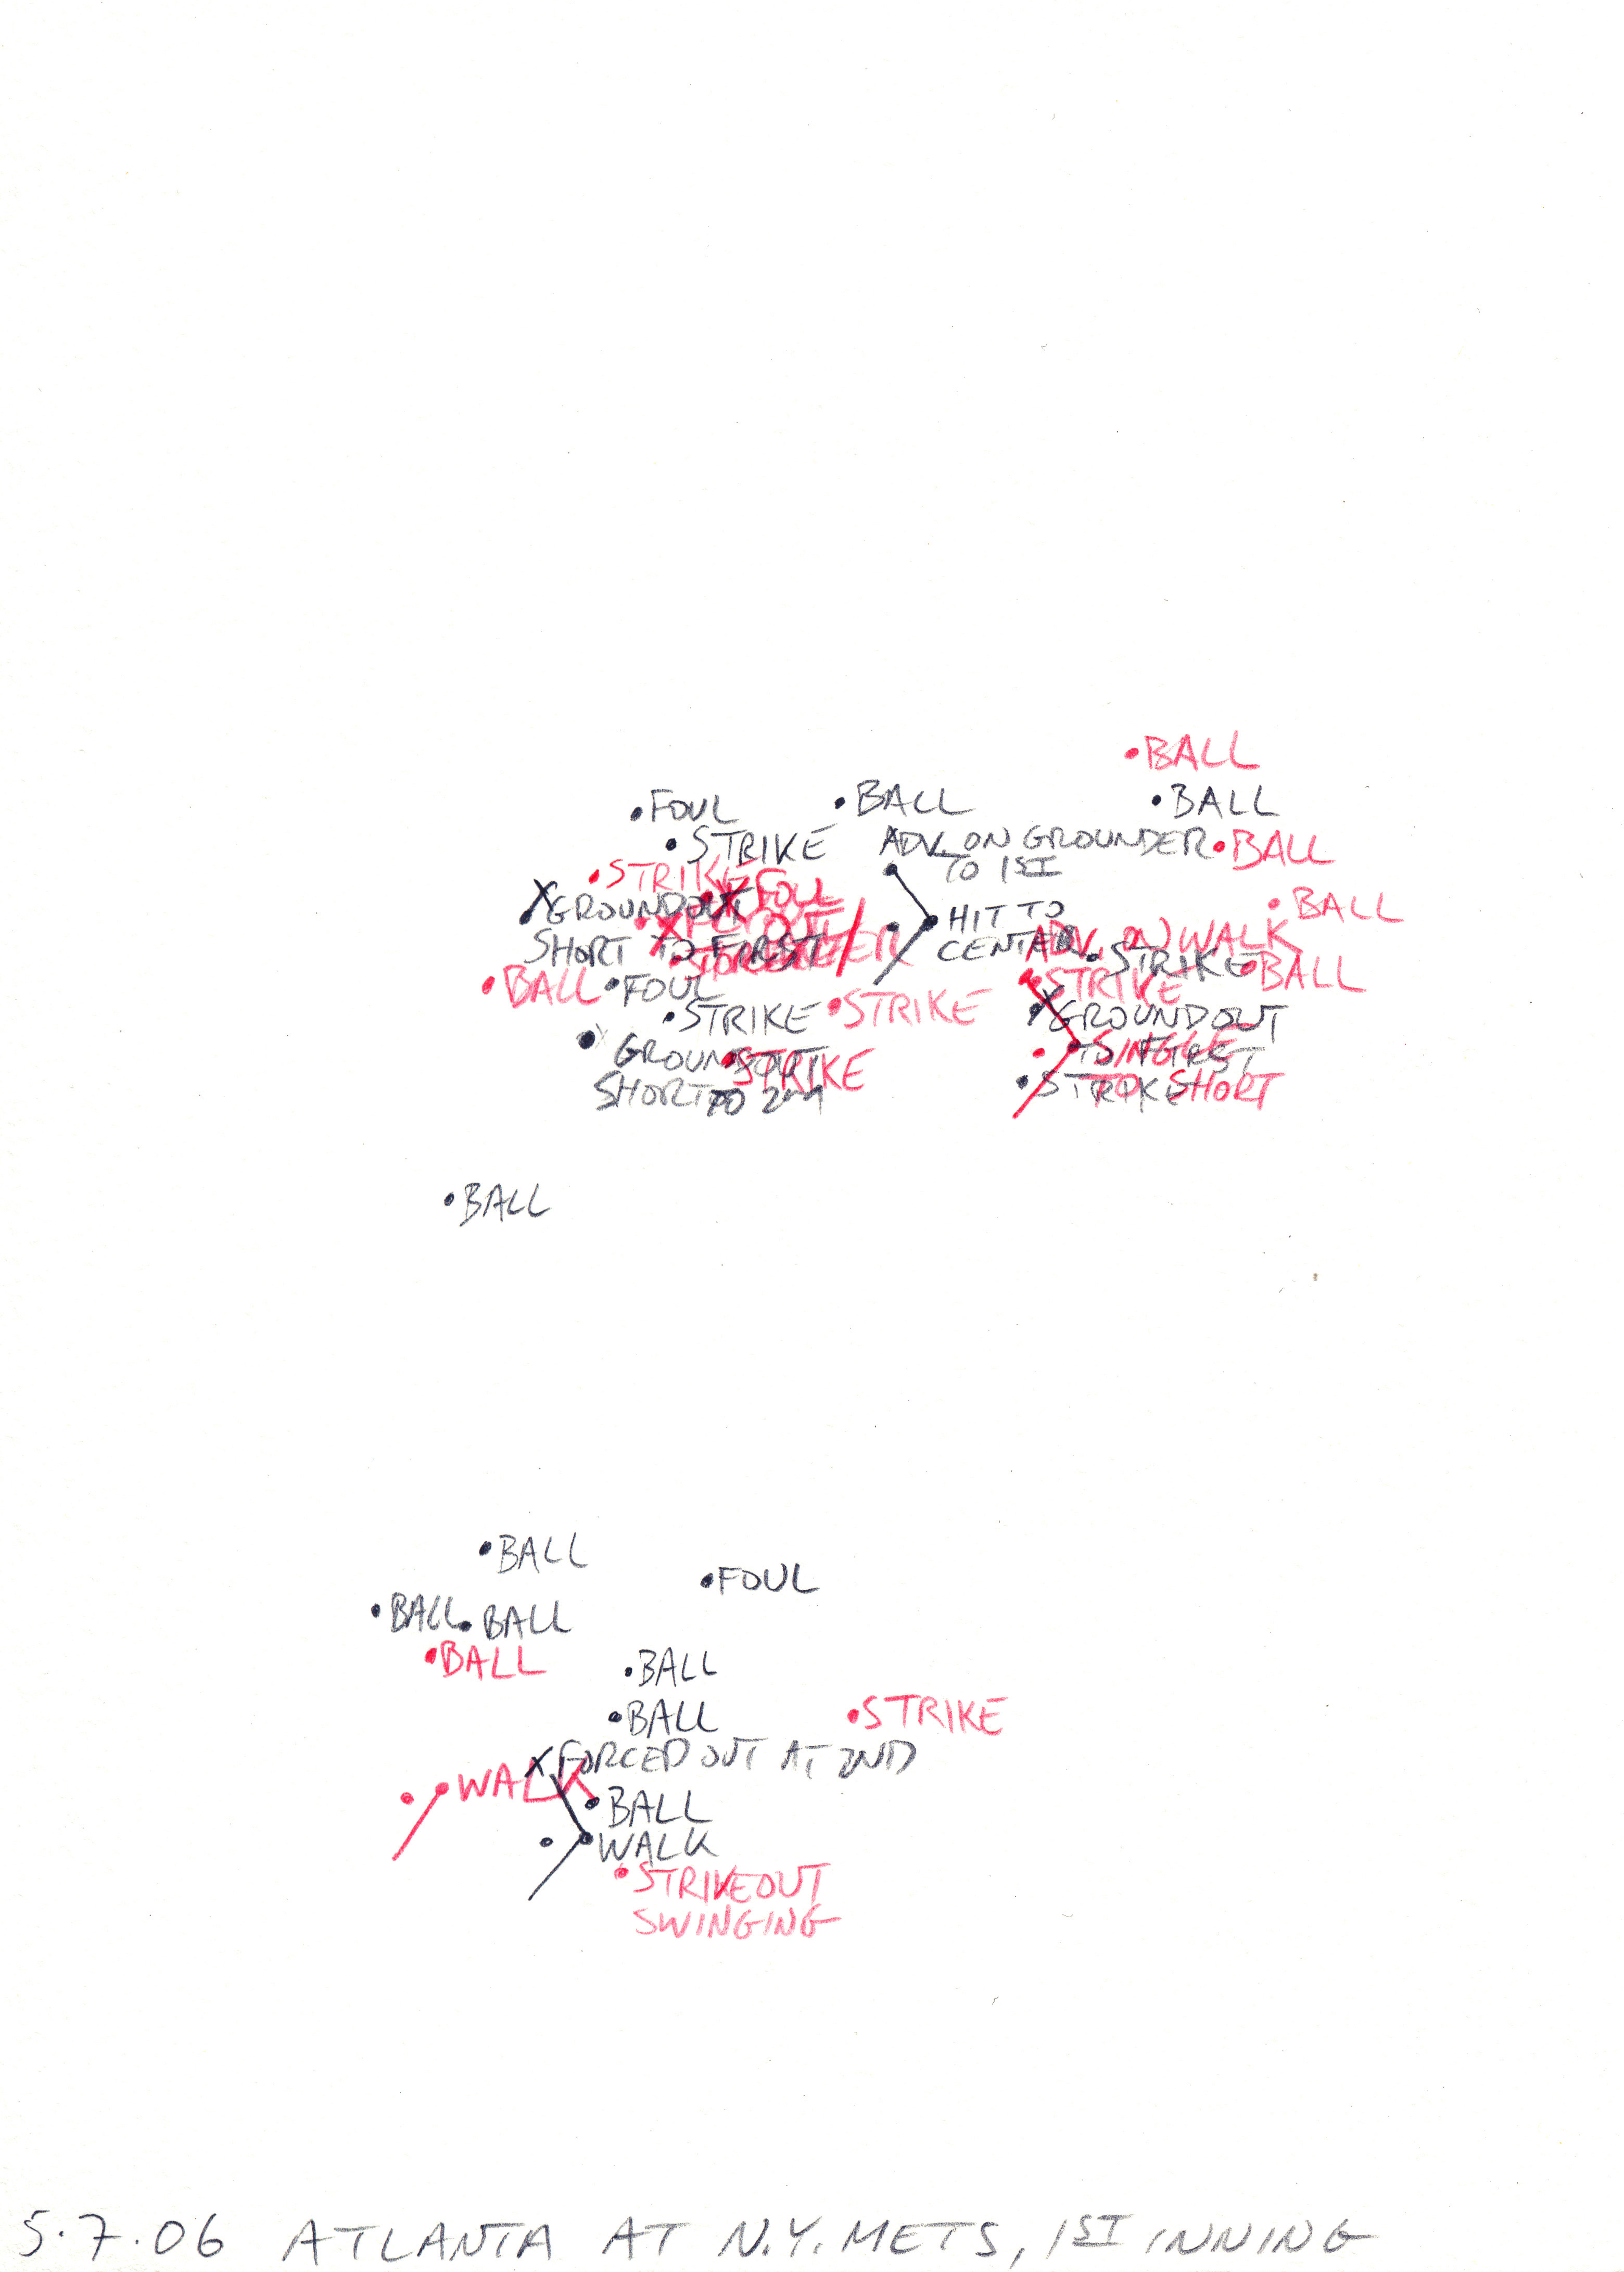 BALL
FOUL
BALL
BALL
STRIKE
ADV. ON GROUNDER
TO 1ST
BALL
STRIKE
FOUL
GROUNDOUT
SHORT TO FIRST
HIT TO
CENTER
BALL
ADV. ON WALK
STRIKE
BALL
BALL
FOUL
STRIKE
STRIKE
STRIKE
GROUNDOUT
TO FIRST
SINGLE
TO SHORT
STRIKE
GROUNDOUT
SHORT TO 2ND
STRIKE
BALL
BALL
FOUL
BALL
BALL
BALL
BALL
BALL
STRIKE
FORCED OUT AT 2ND
WALK
BALL
WALK
STRIKEOUT
SWINGING
5.7.06 ATLANTA AT N.Y. METS, 1ST INNING